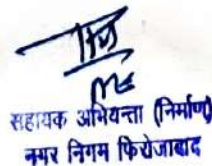 सहायक अभियन्ता (निर्माण)
नगर निगम फिरोजाबाद